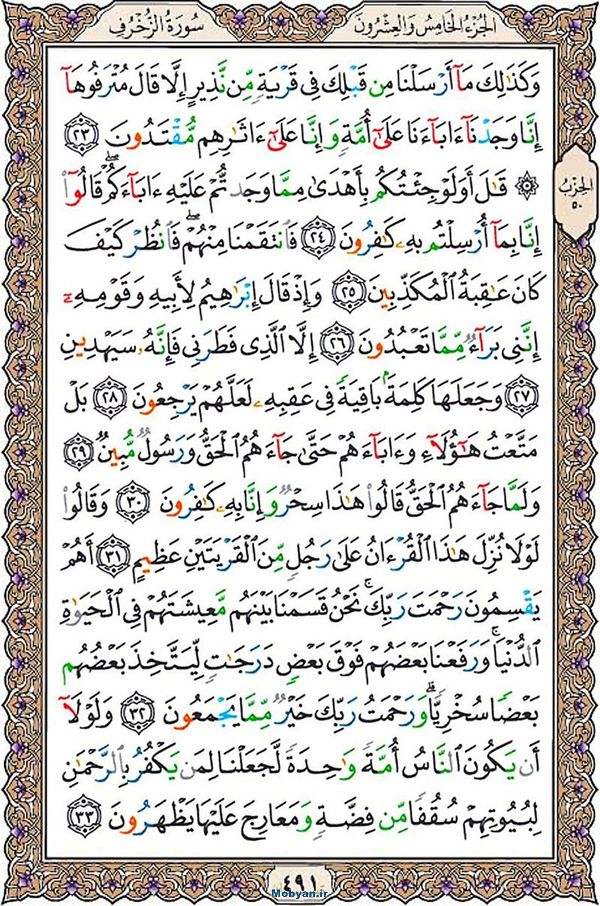 الجزء الخامس والعشرون
سورة الزخرف
وَكَذَٰلِكَ مَآ أَرْسَلْنَا مِن قَبْلِكَ فِى قَرْيَةٍ مِّن نَّذِيرٍ إِلَّا قَالَ مُتْرَفُوهَآ
إِنَّا وَجَدْنَآ ءَابَآءَنَا عَلَىٰٓ أُمَّةٍ وَإِنَّا عَلَىٰٓ ءَاثَـٰرِهِم مُّقْتَدُونَ ٢٣
۞ قَـٰلَ أَوَلَوْ جِئْتُكُم بِأَهْدَىٰ مِمَّا وَجَدتُّمْ عَلَيْهِ ءَابَآءَكُمْ ۖ قَالُوٓا۟
إِنَّا بِمَآ أُرْسِلْتُم بِهِۦ كَـٰفِرُونَ ٢٤ فَٱنتَقَمْنَا مِنْهُمْ ۖ فَٱنظُرْ كَيْفَ
كَانَ عَـٰقِبَةُ ٱلْمُكَذِّبِينَ ٢٥ وَإِذْ قَالَ إِبْرَٰهِيمُ لِأَبِيهِ وَقَوْمِهِۦٓ
إِنَّنِى بَرَآءٌ مِّمَّا تَعْبُدُونَ ٢٦ إِلَّا ٱلَّذِى فَطَرَنِى فَإِنَّهُۥ سَيَهْدِينِ
٢٧ وَجَعَلَهَا كَلِمَةًۢ بَاقِيَةً فِى عَقِبِهِۦ لَعَلَّهُمْ يَرْجِعُونَ ٢٨ بَلْ
مَتَّعْتُ هَـٰٓؤُلَآءِ وَءَابَآءَهُمْ حَتَّىٰ جَآءَهُمُ ٱلْحَقُّ وَرَسُولٌ مُّبِينٌ ٢٩
وَلَمَّا جَآءَهُمُ ٱلْحَقُّ قَالُوا۟ هَـٰذَا سِحْرٌ وَإِنَّا بِهِۦ كَـٰفِرُونَ ٣٠ وَقَالُوا۟
لَوْلَا نُزِّلَ هَـٰذَا ٱلْقُرْءَانُ عَلَىٰ رَجُلٍ مِّنَ ٱلْقَرْيَتَيْنِ عَظِيمٍ ٣١ أَهُمْ
يَقْسِمُونَ رَحْمَتَ رَبِّكَ ۚ نَحْنُ قَسَمْنَا بَيْنَهُم مَّعِيشَتَهُمْ فِى ٱلْحَيَوٰةِ
ٱلدُّنْيَا ۚ وَرَفَعْنَا بَعْضَهُمْ فَوْقَ بَعْضٍ دَرَجَـٰتٍ لِّيَتَّخِذَ بَعْضُهُم
بَعْضًا سُخْرِيًّا ۗ وَرَحْمَتُ رَبِّكَ خَيْرٌ مِّمَّا يَجْمَعُونَ ٣٢ وَلَوْلَآ
أَن يَكُونَ ٱلنَّاسُ أُمَّةً وَٰحِدَةً لَّجَعَلْنَا لِمَن يَكْفُرُ بِٱلرَّحْمَـٰنِ
لِبُيُوتِهِمْ سُقُفًا مِّن فِضَّةٍ وَمَعَارِجَ عَلَيْهَا يَظْهَرُونَ ٣٣
الحزب
٥٠
٤٩١
Mobyan.ir